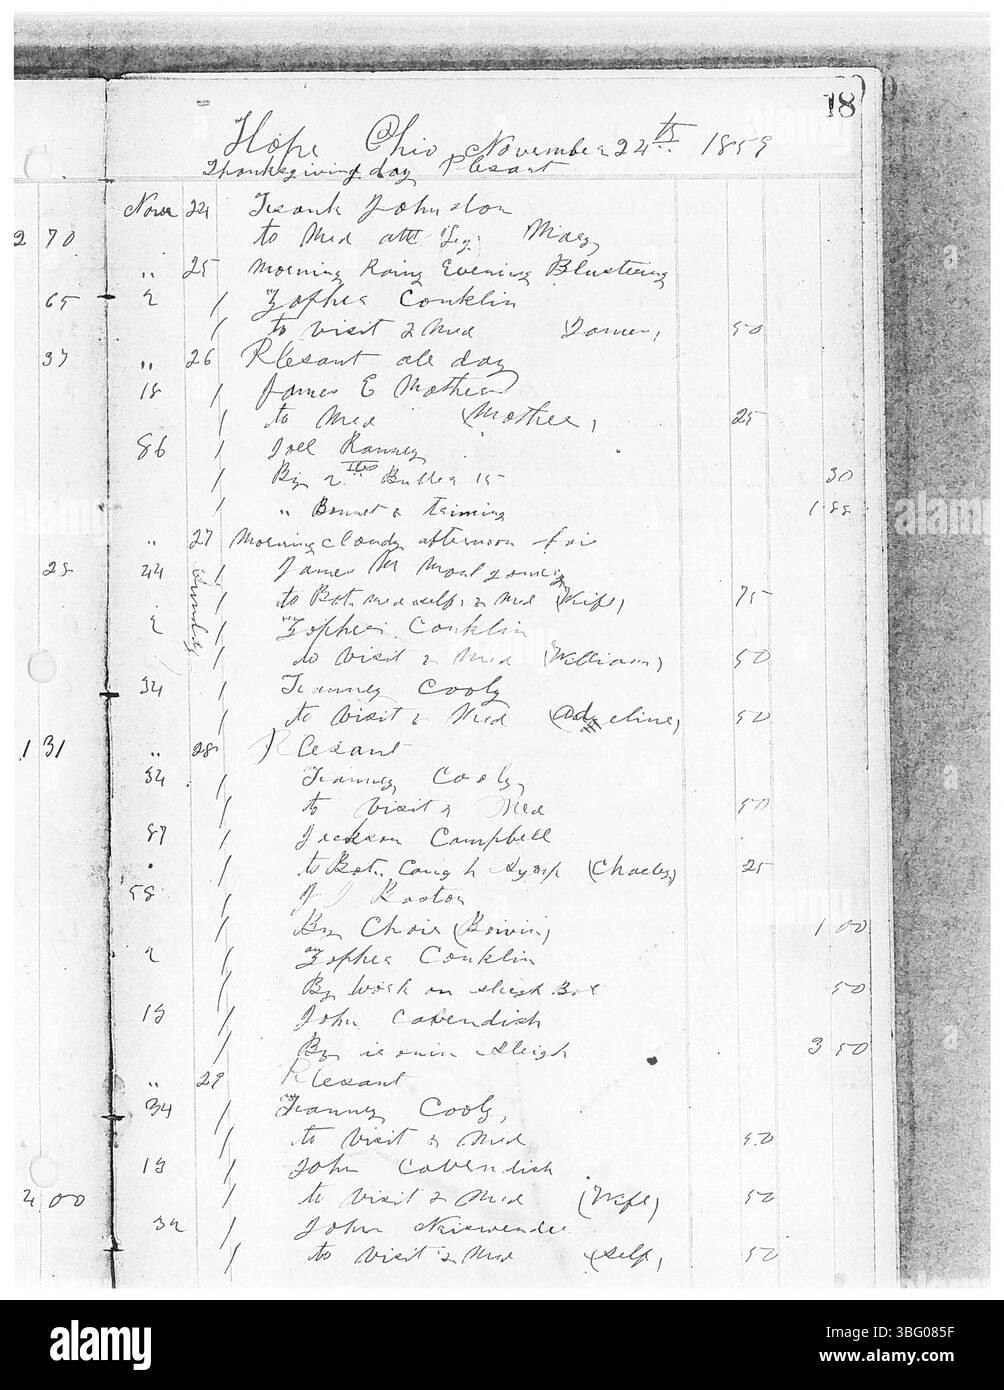 18
Hope Ohio November 24th 1859
Thanksgiving day Plesant
Nov 24 Frank Johnston
2 70 to Med att Leg Mary
" 25 Morning Rainy Evening Blustering
65 2 Zopher Conklin
to visit & Med (James) 50
37 " 26 Plesant all day
18 James E Mother
to Med (Mother) 25
86 Joel Ranney
By 2 lbs Butter 15 30
" Bonnet & triming 1 88
" 27 Morning cloudy afternoon fair
Sunday
25 44 James M Montgomery
to Bot. Med self, & Med (Wife) 75
2 Zopher Conklin
to visit & Med (William) 50
34 Franney Cooly
to visit & Med (Adveline) 50
1 31 " 28 Plesant
34 Franney Cooly
to visit & Med 50
87 Jackson Campbell
to Bot. Cough Syrup (Charley) 25
58 J J Kaston
By Chair 1 00
2 Zopher Conklin
By work on sleigh Box 50
13 John Cavendish
By ironin sleigh 3 50
" 29 Plesant
34 Franney Cooly
to visit & Med 50
13 John Cavendish
2 00 to visit & Med (Wife) 50
32 John Niswender
to visit & Med (self) 50
alamy
a
alamy
Image ID: 3BG085F
www.alamy.com